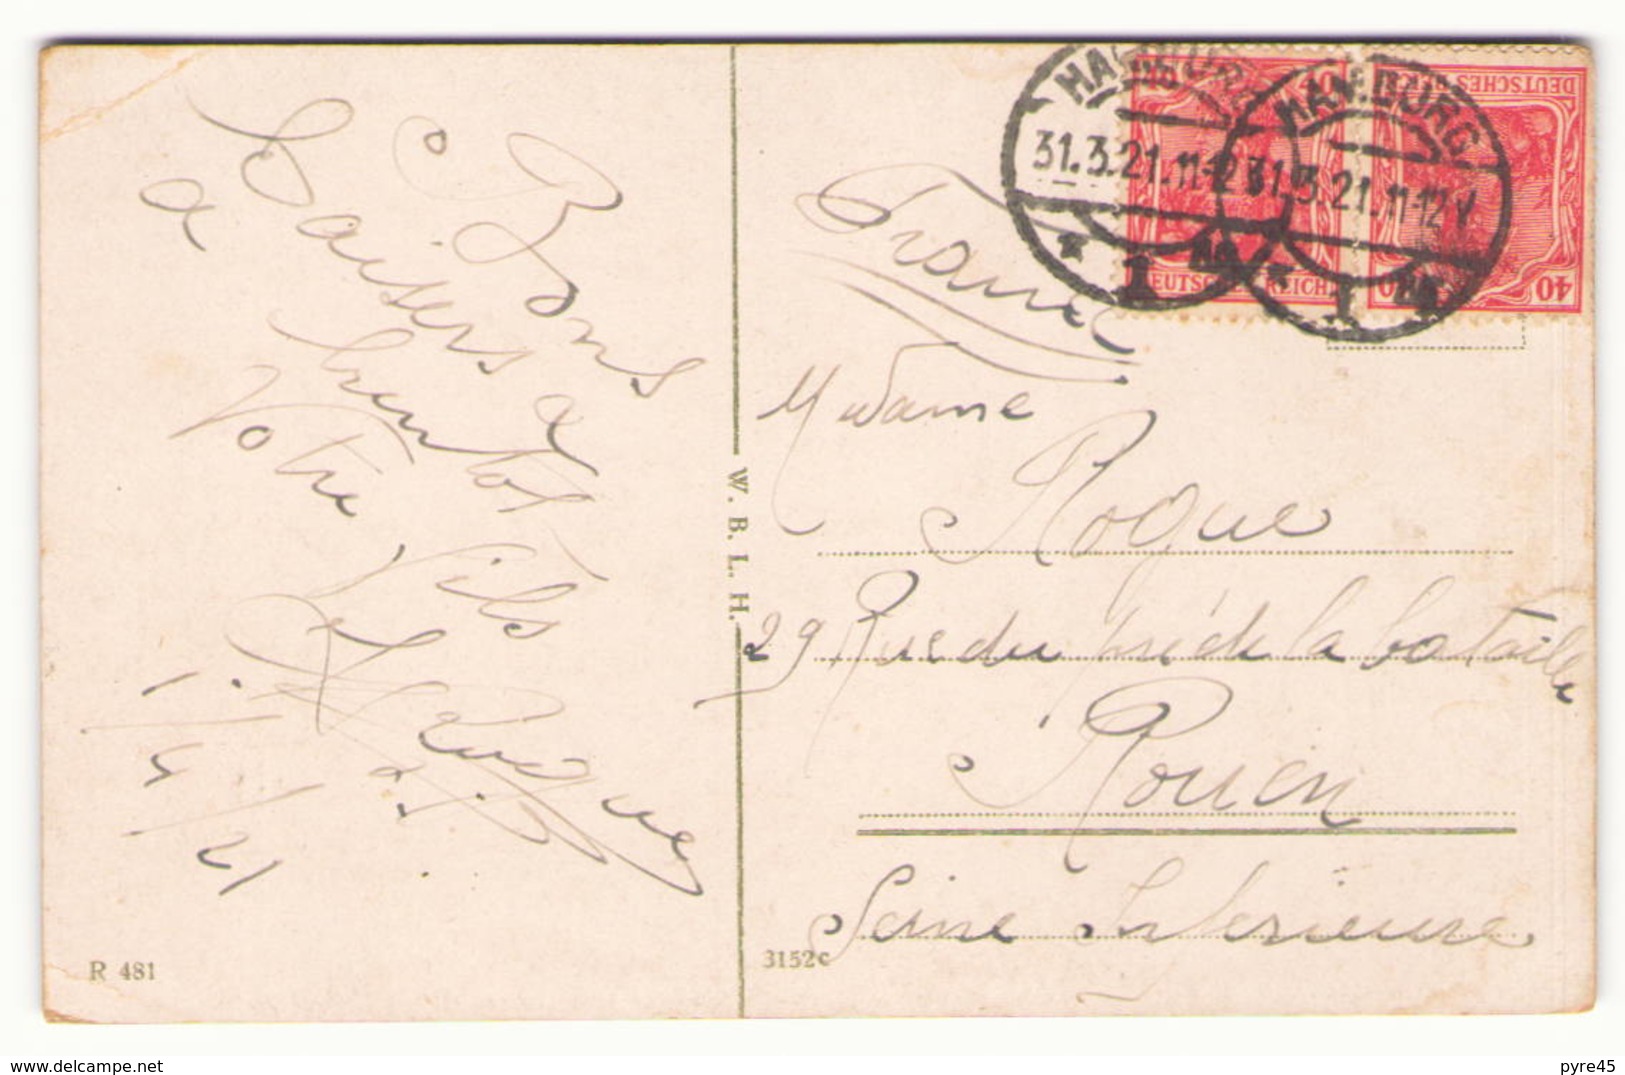 Bons
Baisers
a
a
bientot
Votre
fils
1/4/21
R 481
W. B. L. H.
3152c
HAMBURG
31.3.21.11-12V
* 1
HAMBURG
31.3.21.11-12V
* 1
DEUTSCHES REICH
DEUTSCHES REICH
40
40
France
Madame
Roque
29 Rue du pré de la bataille
Rouen
Seine Inferieure
www.delcampe.net
pyre45